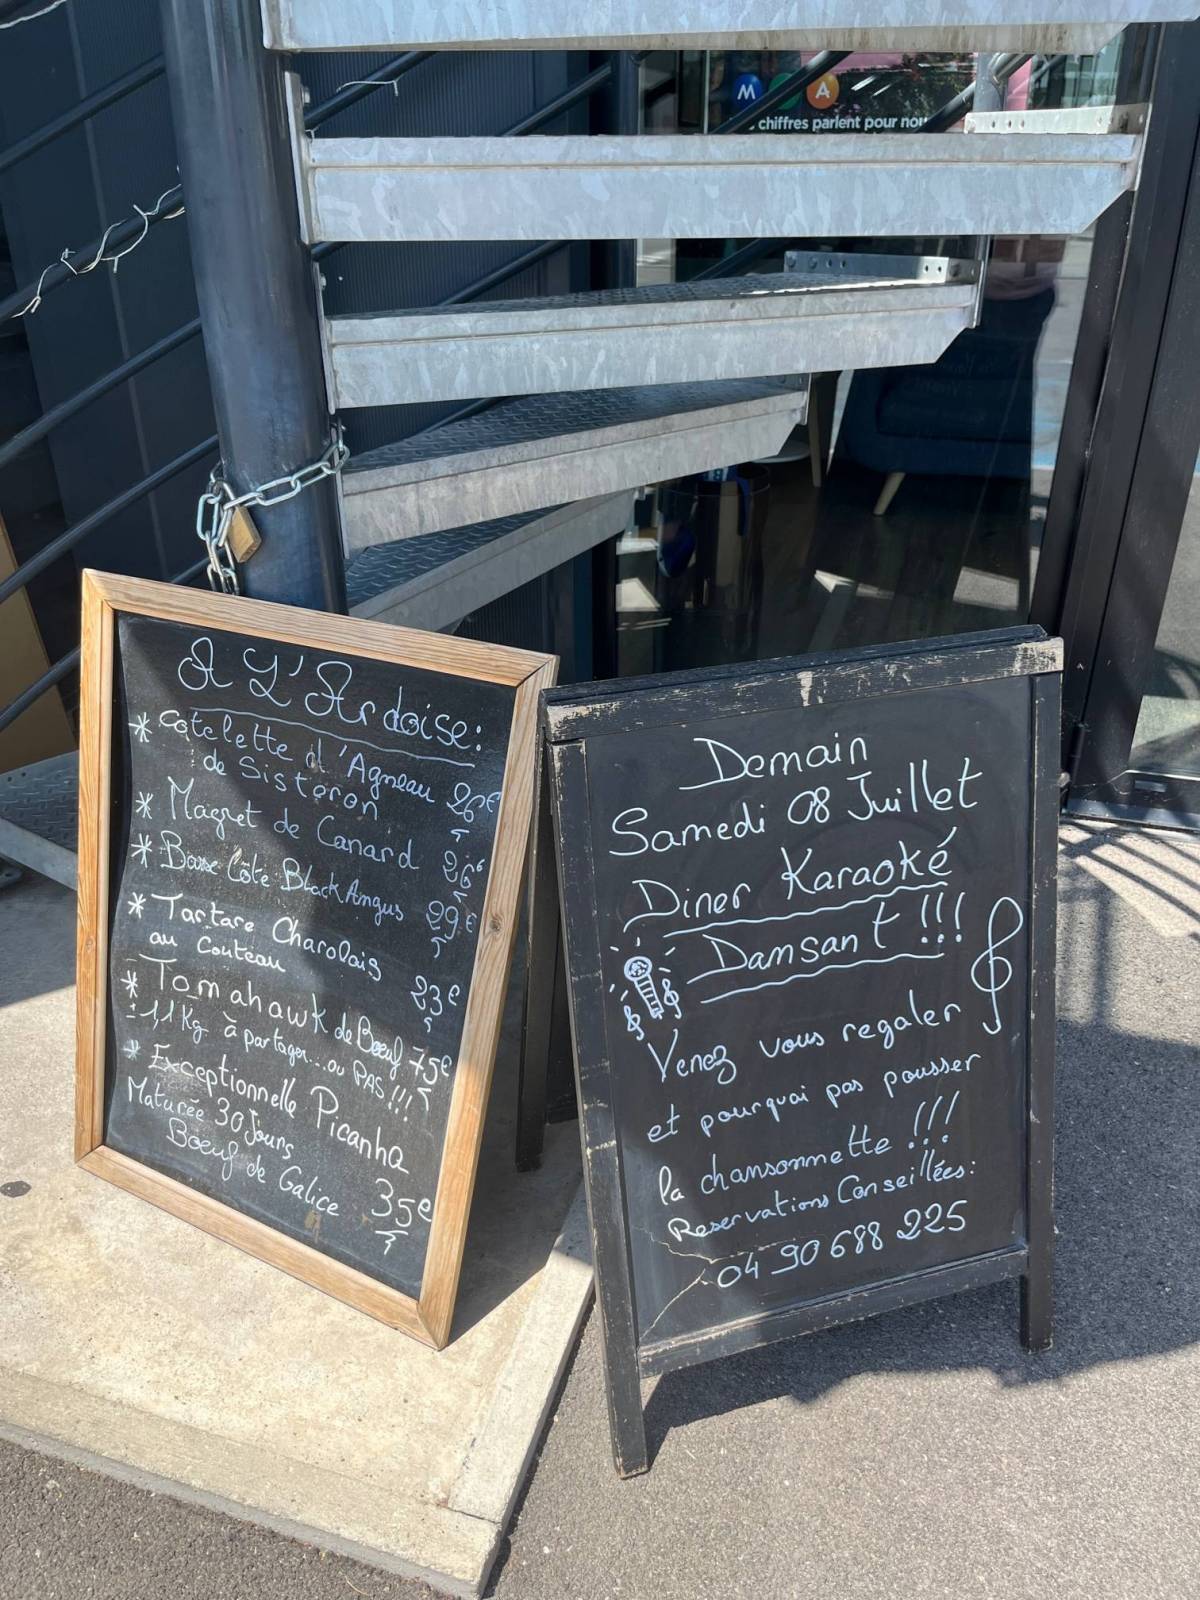 M A
chiffres parlent pour nou
A L'Ardoise:
* Cotelette d'Agneau 26€
de Sisteron
* Magret de Canard 26€
* Basse Côte Black Angus 29€
* Tartare Charolais
au Couteau 23€
* Tomahawk de Boeuf 75€
± 1,1 Kg à partager... ou PAS !!!
* Exceptionnelle Picanha
Maturée 30 Jours
Boeuf de Galice 35€
Demain
Samedi 08 Juillet
Diner Karaoké
Damsant !!!
Venez vous regaler
et pourquoi pas pousser
la chansonnette !!!
Reservations Conseillées:
04 90 688 225